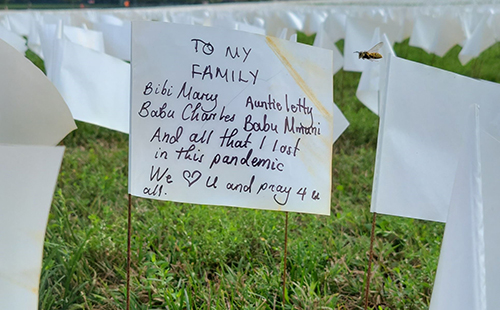 TO MY
FAMILY
Bibi Mary Auntie Letty
Babu Charles Babu
And all that I lost
in this pandemic
We ♡ u and pray 4 u
all.